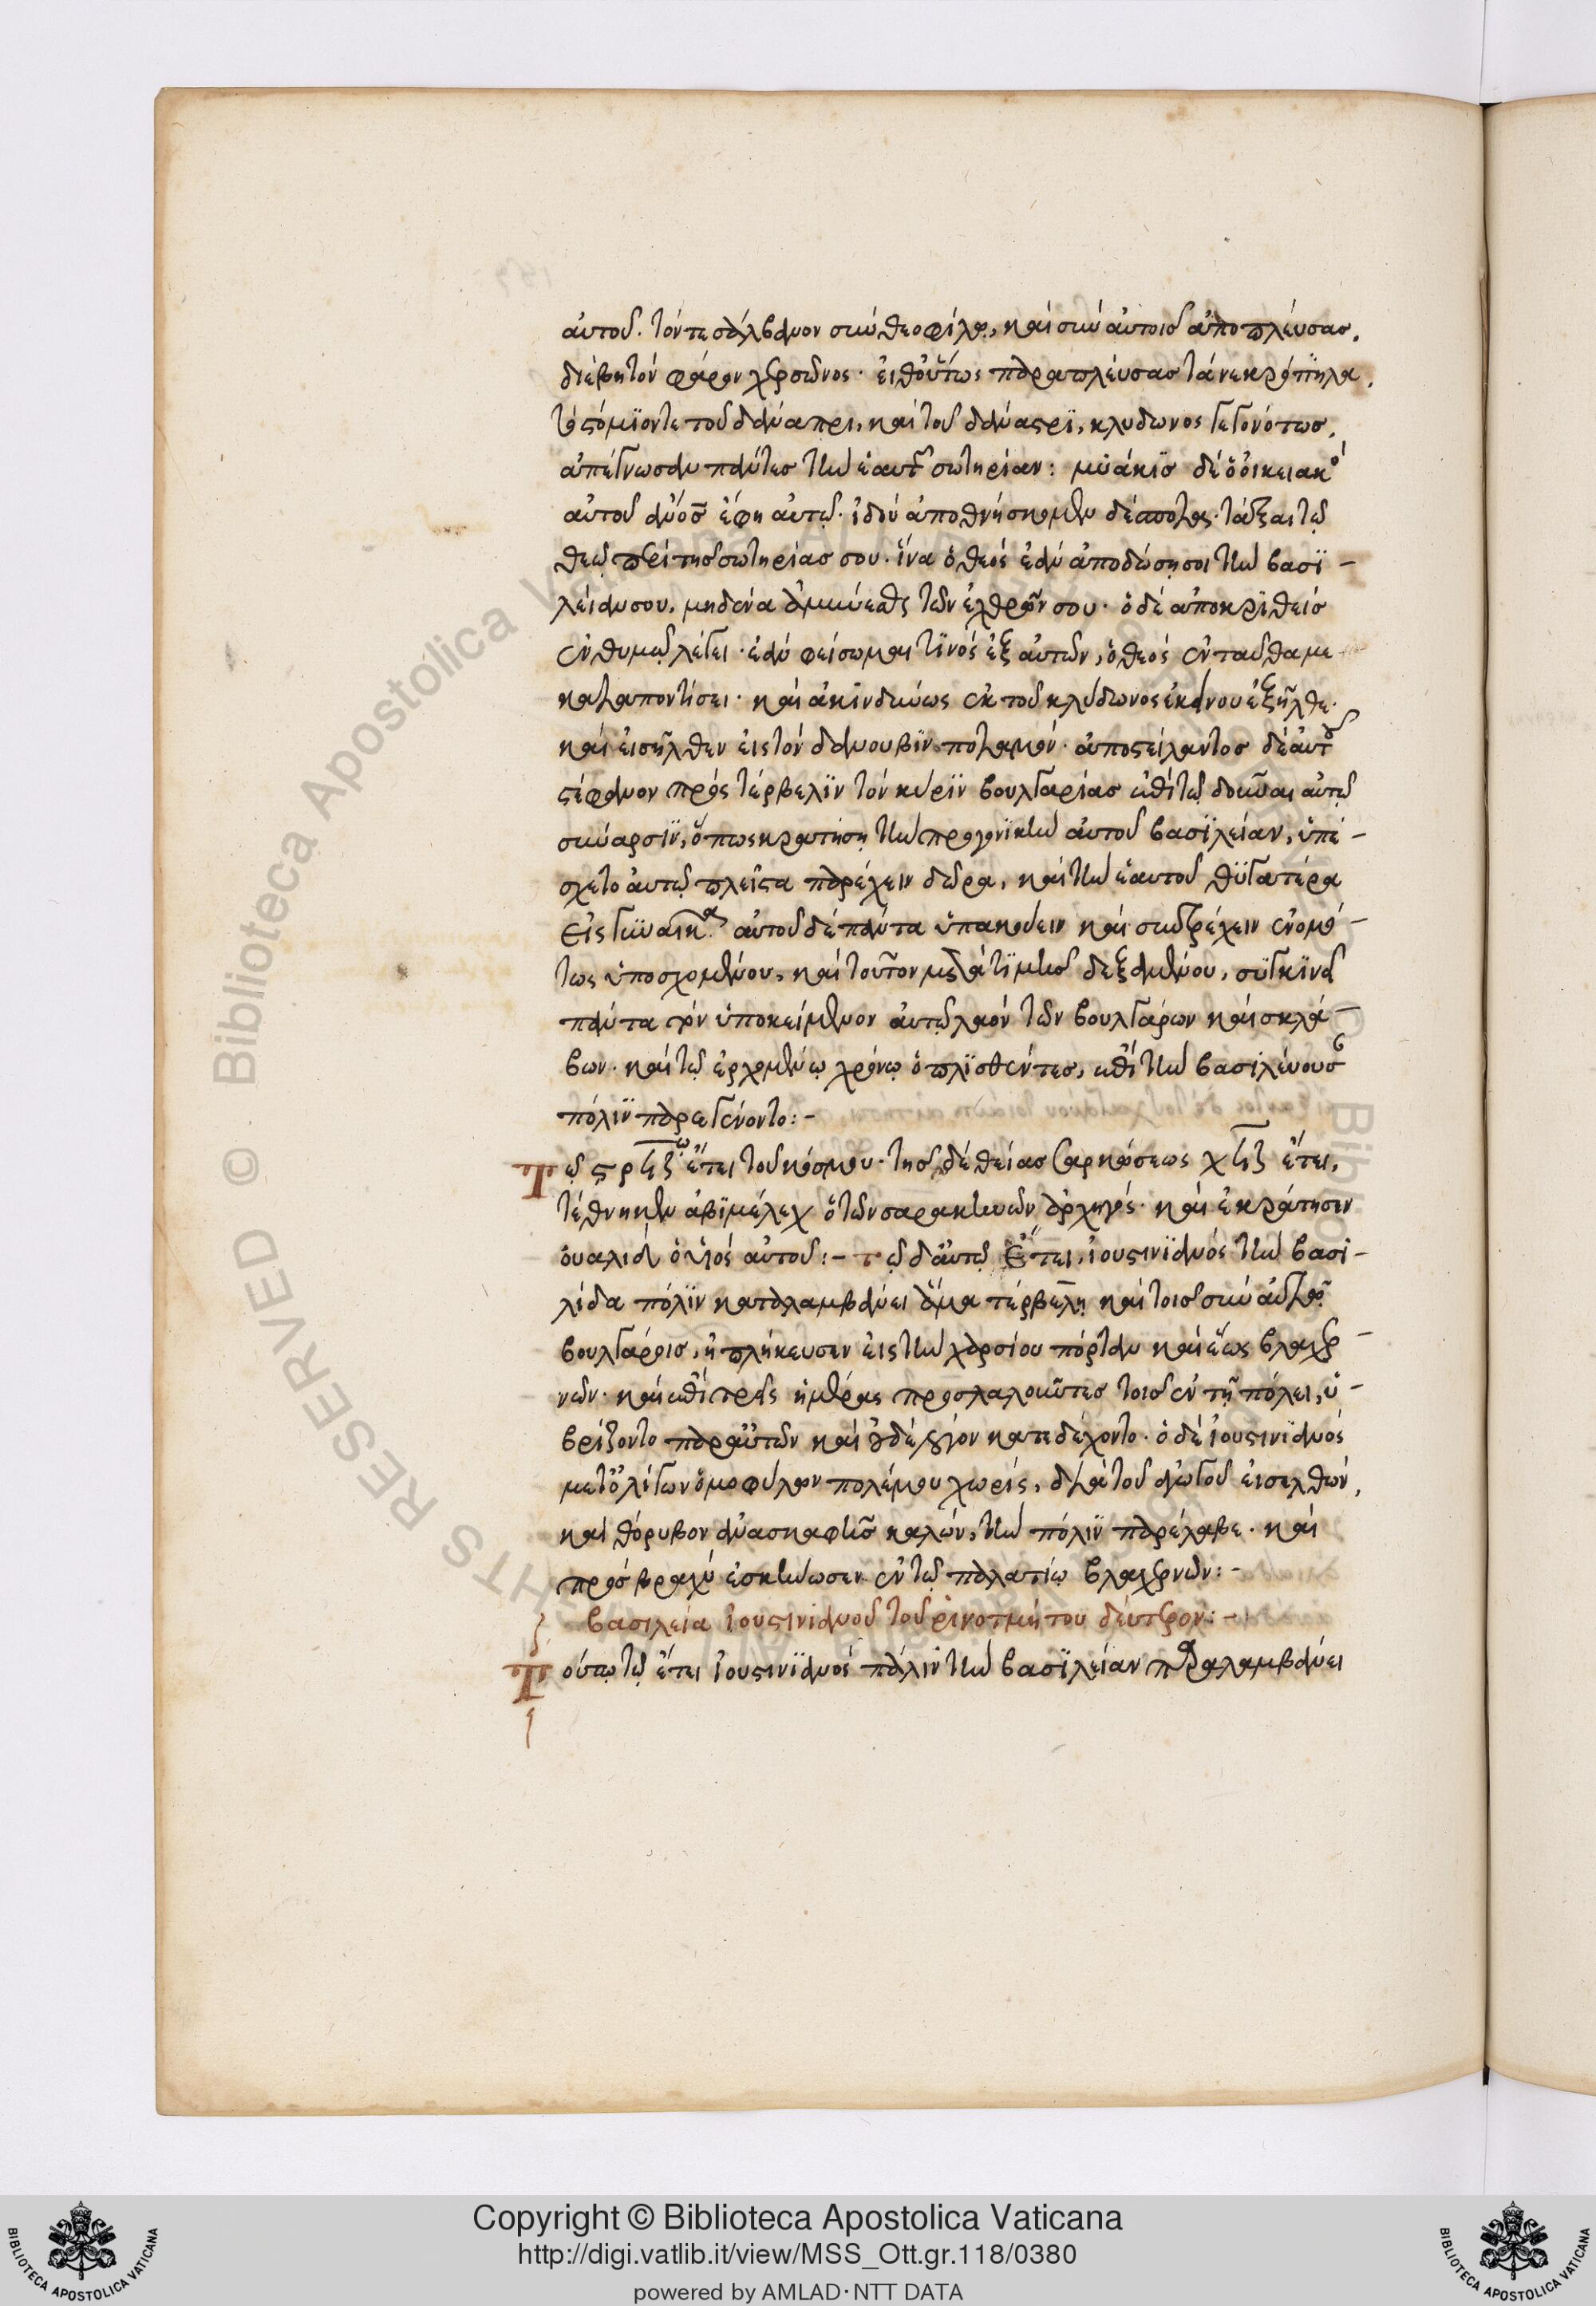 αὐτοῦ. τόν τε σάλβανον σὺν θεοφίλῳ, καὶ σὺν αὐτοῖς ἀποπλεύσας,
διέβη τὸν φάρον χερσῶνος· εἶθ' οὕτως παραπλεύσας τὰ νεκρόπηλα,
τὸ στόμιόν τε τοῦ δάναπρι, καὶ τοῦ δάναστρι, κλύδωνος γεγονότως,
ἀπέγνωσαν πάντες τὴν ἑαυτῶν σωτηρίαν: μυάκις δὲ ὁ οἰκειακὸς
αὐτοῦ ἄνος ἔφη αὐτῷ· ἰδοὺ ἀποθνήσκομεν δέσποτα· τάξαι τῷ
θεῷ περὶ τῆς σωτηρίας σου· ἵνα ὁ θεὸς ἐὰν ἀποδώσῃ σοι τὴν βασι-
λείαν σου, μηδένα ἀμυνεῖς τῶν ἐχθρῶν σου· ὁ δὲ ἀποκριθεὶς
ἐν θυμῷ λέγει· ἐὰν φείσωμαι τινὸς ἐξ αὐτῶν, ὁ θεὸς ἐνταῦθα με
καταποντίσει· καὶ ἀκινδύνως ἐκ τοῦ κλύδωνος ἐκείνου ἐξῆλθε·
καὶ εἰσῆλθεν εἰς τὸν δανουβιν ποταμόν· ἀποστείλαντος δὲ αὐτοῦ
στέφανον πρὸς τέρβελιν τὸν κύριν βουλγαρίας ἐπὶ τῷ δοῦναι αὐτῷ
σύναρσιν, ὅπως κρατήσῃ τὴν προγονικὴν αὐτοῦ βασιλείαν, ὑπέ-
σχετο αὐτῷ πλεῖστα παρέχειν δῶρα, καὶ τὴν ἑαυτοῦ θυγατέρα
εἰς γυναῖκα· αὐτοῦ δὲ πάντα ὑπακούειν καὶ συντρέχειν ἐνόμό-
τως ὑποσχομένου, καὶ τοῦτον μετὰ τιμῆς δεξαμένου, συγκινεῖ
πάντα τὸν ὑποκείμενον αὐτῷ λαὸν τῶν βουλγάρων καὶ σκλά-
βων· καὶ τῷ ἐρχομένῳ χρόνῳ ὁπλισθέντες, ἐπὶ τὴν βασιλεύουσαν
πόλιν παρεγένοντο:-
Τῷ ϛρϟζῳ ἔτει τοῦ κόσμου· τῆς δὲ θείας σαρκώσεως χϟζ ἔτει,
τέθνηκεν ἀβιμέλεχ ὁ τῶν σαρακηνῶν ἀρχηγός· καὶ ἐκράτησεν
ὁ οὐαλιδ ὁ υἱὸς αὐτοῦ:- τῷ δ' αὐτῷ ἔτει, ἰουστινιανὸς τὴν βασι-
λίδα πόλιν καταλαμβάνει ἅμα τέρβελη καὶ τοῖς σὺν αὐτῷ
βουλγάροις, ἡπλήκευσεν εἰς τὴν χαρσίου πόρταν καὶ ἕως βλαχερ-
νῶν· καὶ ἐπὶ τρεῖς ἡμέρας προσλαλοῦντες τοῖς ἐν τῇ πόλει, ὑ-
βρίζοντο παρ' αὐτῶν καὶ οὐδὲ λόγον κατεδέχοντο· ὁ δὲ ἰουστινιανὸς
μετ' ὀλίγων ὁμοφύλων πολέμου χωρίς, διὰ τοῦ ἀγωγοῦ εἰσελθών,
καὶ θόρυβον ἀνασκαφῆς καλῶν, τὴν πόλιν παρέλαβε· καὶ
πρὸς βραχὺ ἐσκήνωσεν ἐν τῷ παλατίῳ βλαχερνῶν:-
βασιλεία ἰουστινιανοῦ τοῦ ῥινοτμήτου δεύτερον:-
Τούτῳ τῷ ἔτει ἰουστινιανὸς πάλιν τὴν βασιλείαν παραλαμβάνει
Copyright © Biblioteca Apostolica Vaticana
http://digi.vatlib.it/view/MSS_Ott.gr.118/0380
powered by AMLAD·NTT DATA